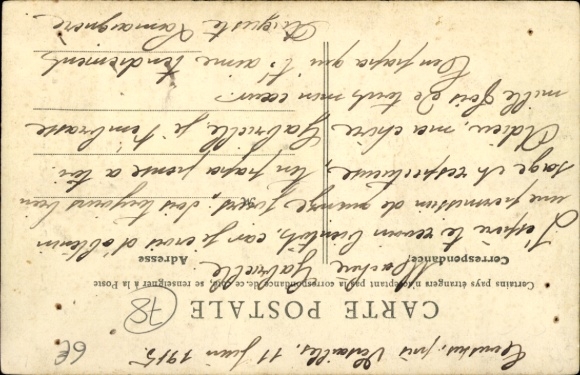 6€
près Versailles, 11 juin 1915.
CARTE POSTALE
78
Certains pays étrangers n'acceptant pas la correspondance de ce côté, se renseigner à la Poste
Correspondance Adresse
Ma chère Gabrielle
J'espère te revoir bientôt, car je crois d'obtenir
une permission de quinze jours, sois toujours bien
sage et respectueuse, ton papa pense à toi.
Adieu, ma chère Gabrielle, je t'embrasse
mille fois de tout mon cœur.
Ton papa qui t'aime tendrement
Auguste